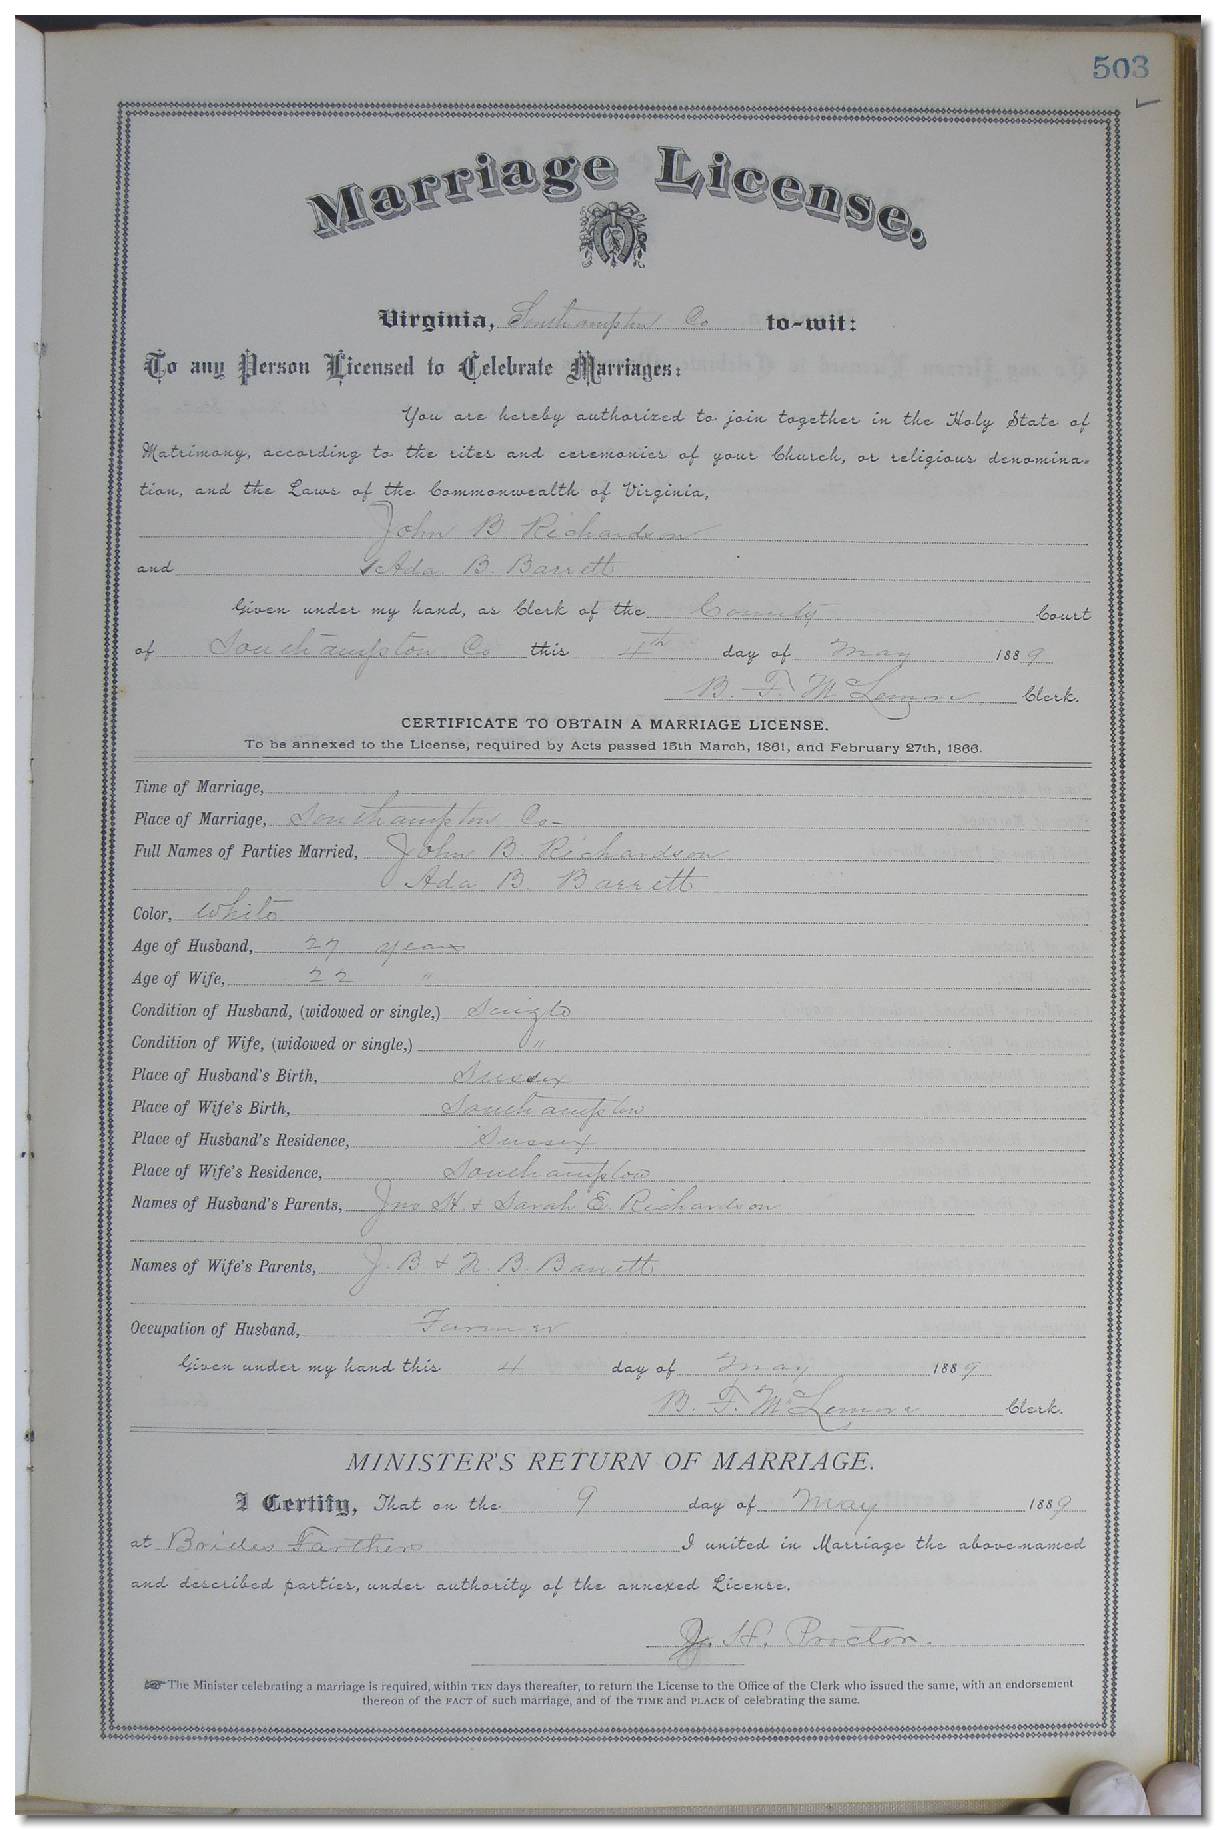 503
Marriage License.
Virginia, Southampton Co to-wit:
To any Person Licensed to Celebrate Marriages:
You are hereby authorized to join together in the Holy State of
Matrimony, according to the rites and ceremonies of your Church, or religious denomina-
tion, and the Laws of the Commonwealth of Virginia,
John B Richardson
and Ada B. Barrett
Given under my hand, as Clerk of the County Court
of Southampton Co this 4th day of May 1889
B. F. McLemore Clerk.
CERTIFICATE TO OBTAIN A MARRIAGE LICENSE.
To be annexed to the License, required by Acts passed 15th March, 1861, and February 27th, 1866.
Time of Marriage,
Place of Marriage, Southampton Co-
Full Names of Parties Married, John B Richardson
Ada B. Barrett
Color, White
Age of Husband, 27 years
Age of Wife, 22 "
Condition of Husband, (widowed or single,) Single
Condition of Wife, (widowed or single,) "
Place of Husband's Birth, Sussex
Place of Wife's Birth, Southampton
Place of Husband's Residence, Sussex
Place of Wife's Residence, Southampton
Names of Husband's Parents, Jno H. & Sarah E. Richardson
Names of Wife's Parents, J. B & N. B. Barrett
Occupation of Husband, Farmer
Given under my hand this 4 day of May 1889
B. F. McLemore Clerk.
MINISTER'S RETURN OF MARRIAGE.
I Certify, That on the 9 day of May 1889
at Brides Farthers I united in Marriage the above-named
and described parties, under authority of the annexed License.
J. H. Proctor.
The Minister celebrating a marriage is required, within TEN days thereafter, to return the License to the Office of the Clerk who issued the same, with an endorsement
thereon of the FACT of such marriage, and of the TIME and PLACE of celebrating the same.